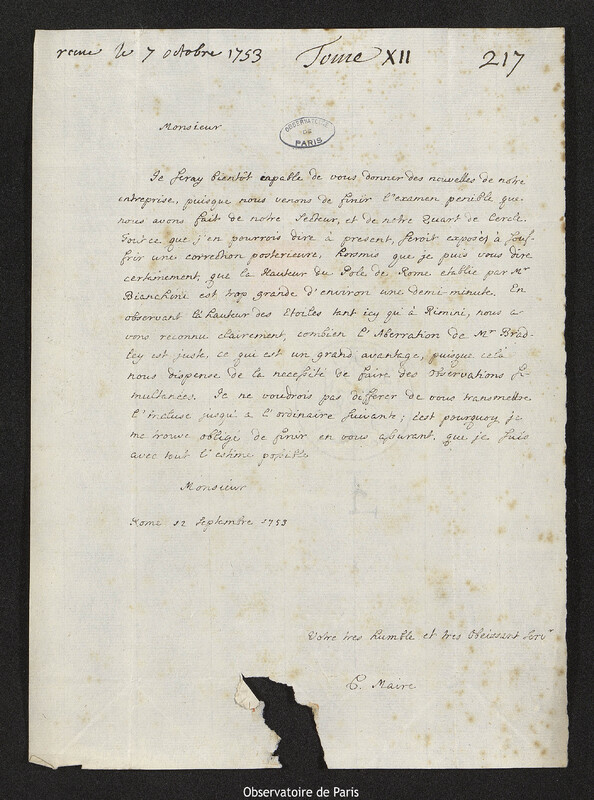 reçue le 7 octobre 1753 Tome XII 217
Monsieur
OBSERVATOIRE
DE
PARIS
Je seray bientôt capable de vous donner des nouvelles de nôtre
entreprise, puisque nous venons de finir l'examen penible que
nous avons fait de notre Secteur, et de notre Quart de Cercle.
Tout ce que j'en pourrois dire à present, seroit exposés à souf-
frir une correction posterieure, hormis que je puis vous dire
certainement, que la Hauteur du Pole de Rome etablie par Mr
Bianchini est trop grande d'environ une demi-minute. En
observant la hauteur des Etoiles tant icy qu'à Rimini, nous a-
vons reconnu clairement, combien l'Aberration de Mr Brad-
ley est juste, ce qui est un grand avantage, puisque cela
nous dispense de la necessité de faire des observations si-
multanées. Je ne voudrois pas differer de vous transmettre
l'incluse jusqu'a l'ordinaire suivante; c'est pourquoy je
me trouve obligé de finir en vous assurant, que je suis
avec tout l'estime possible
Monsieur
Rome 12 Septembre 1753
Votre tres humble et tres obeissant servr
C. Maire
Observatoire de Paris